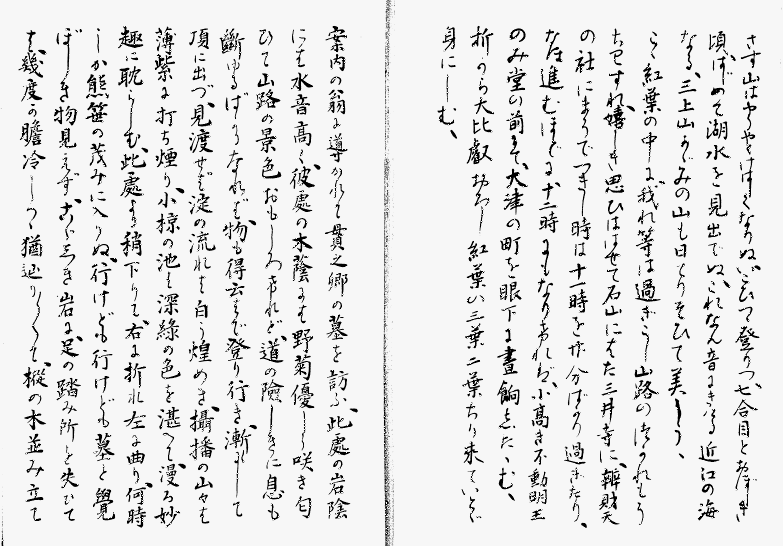 さす山はやうやくはしくなりぬいこひて登りつ七合目とおぼしき
頃はじめて湖水を見出でぬこれなん音にきこゆる近江の海
なる三上山かゞみの山も日とりそひて美しう、
らゝ紅葉の中に我れ等は過ぎうし山路のつかれもう
ちわすれ嬉しき思ひはせて石山にはた三井寺に辨財天
の社にまうでつきし時は十一時を廿分ばかり過ぎたり、
なほ進むほどに十二時にもなりぬれば小高き不動明王
のみ堂の前まで大津の町を眼下に晝餉したゝむ、
折から大比叡おろし紅葉い三葉二葉ちり来ていとゞ
身にしむ、
案内の翁に導かれて貫之卿の墓を訪ふ此處の岩陰
にも水音高く彼處の木蔭にも野菊優しう咲き匂
ひて山路の景色おもしろけれど道の險しきに息も
斷ゆるばかりなれば物も得云はで登り行き漸くして
頂に出づ見渡せば淀の流れも白う煌めき攝播の山々も
薄紫に打ち煙り小椋の池も深綠の色を湛へて漫ろ妙
趣に耽らしむ此處より稍下りて右に折れ左に曲り何時
しか熊笹の茂みに入りぬ行けども行けども墓と覺
ぼしき物見えずおどろしき岩に足の踏み所を失ひて
は幾度か膽冷しつゝ猶辿りくて樅の木並み立て